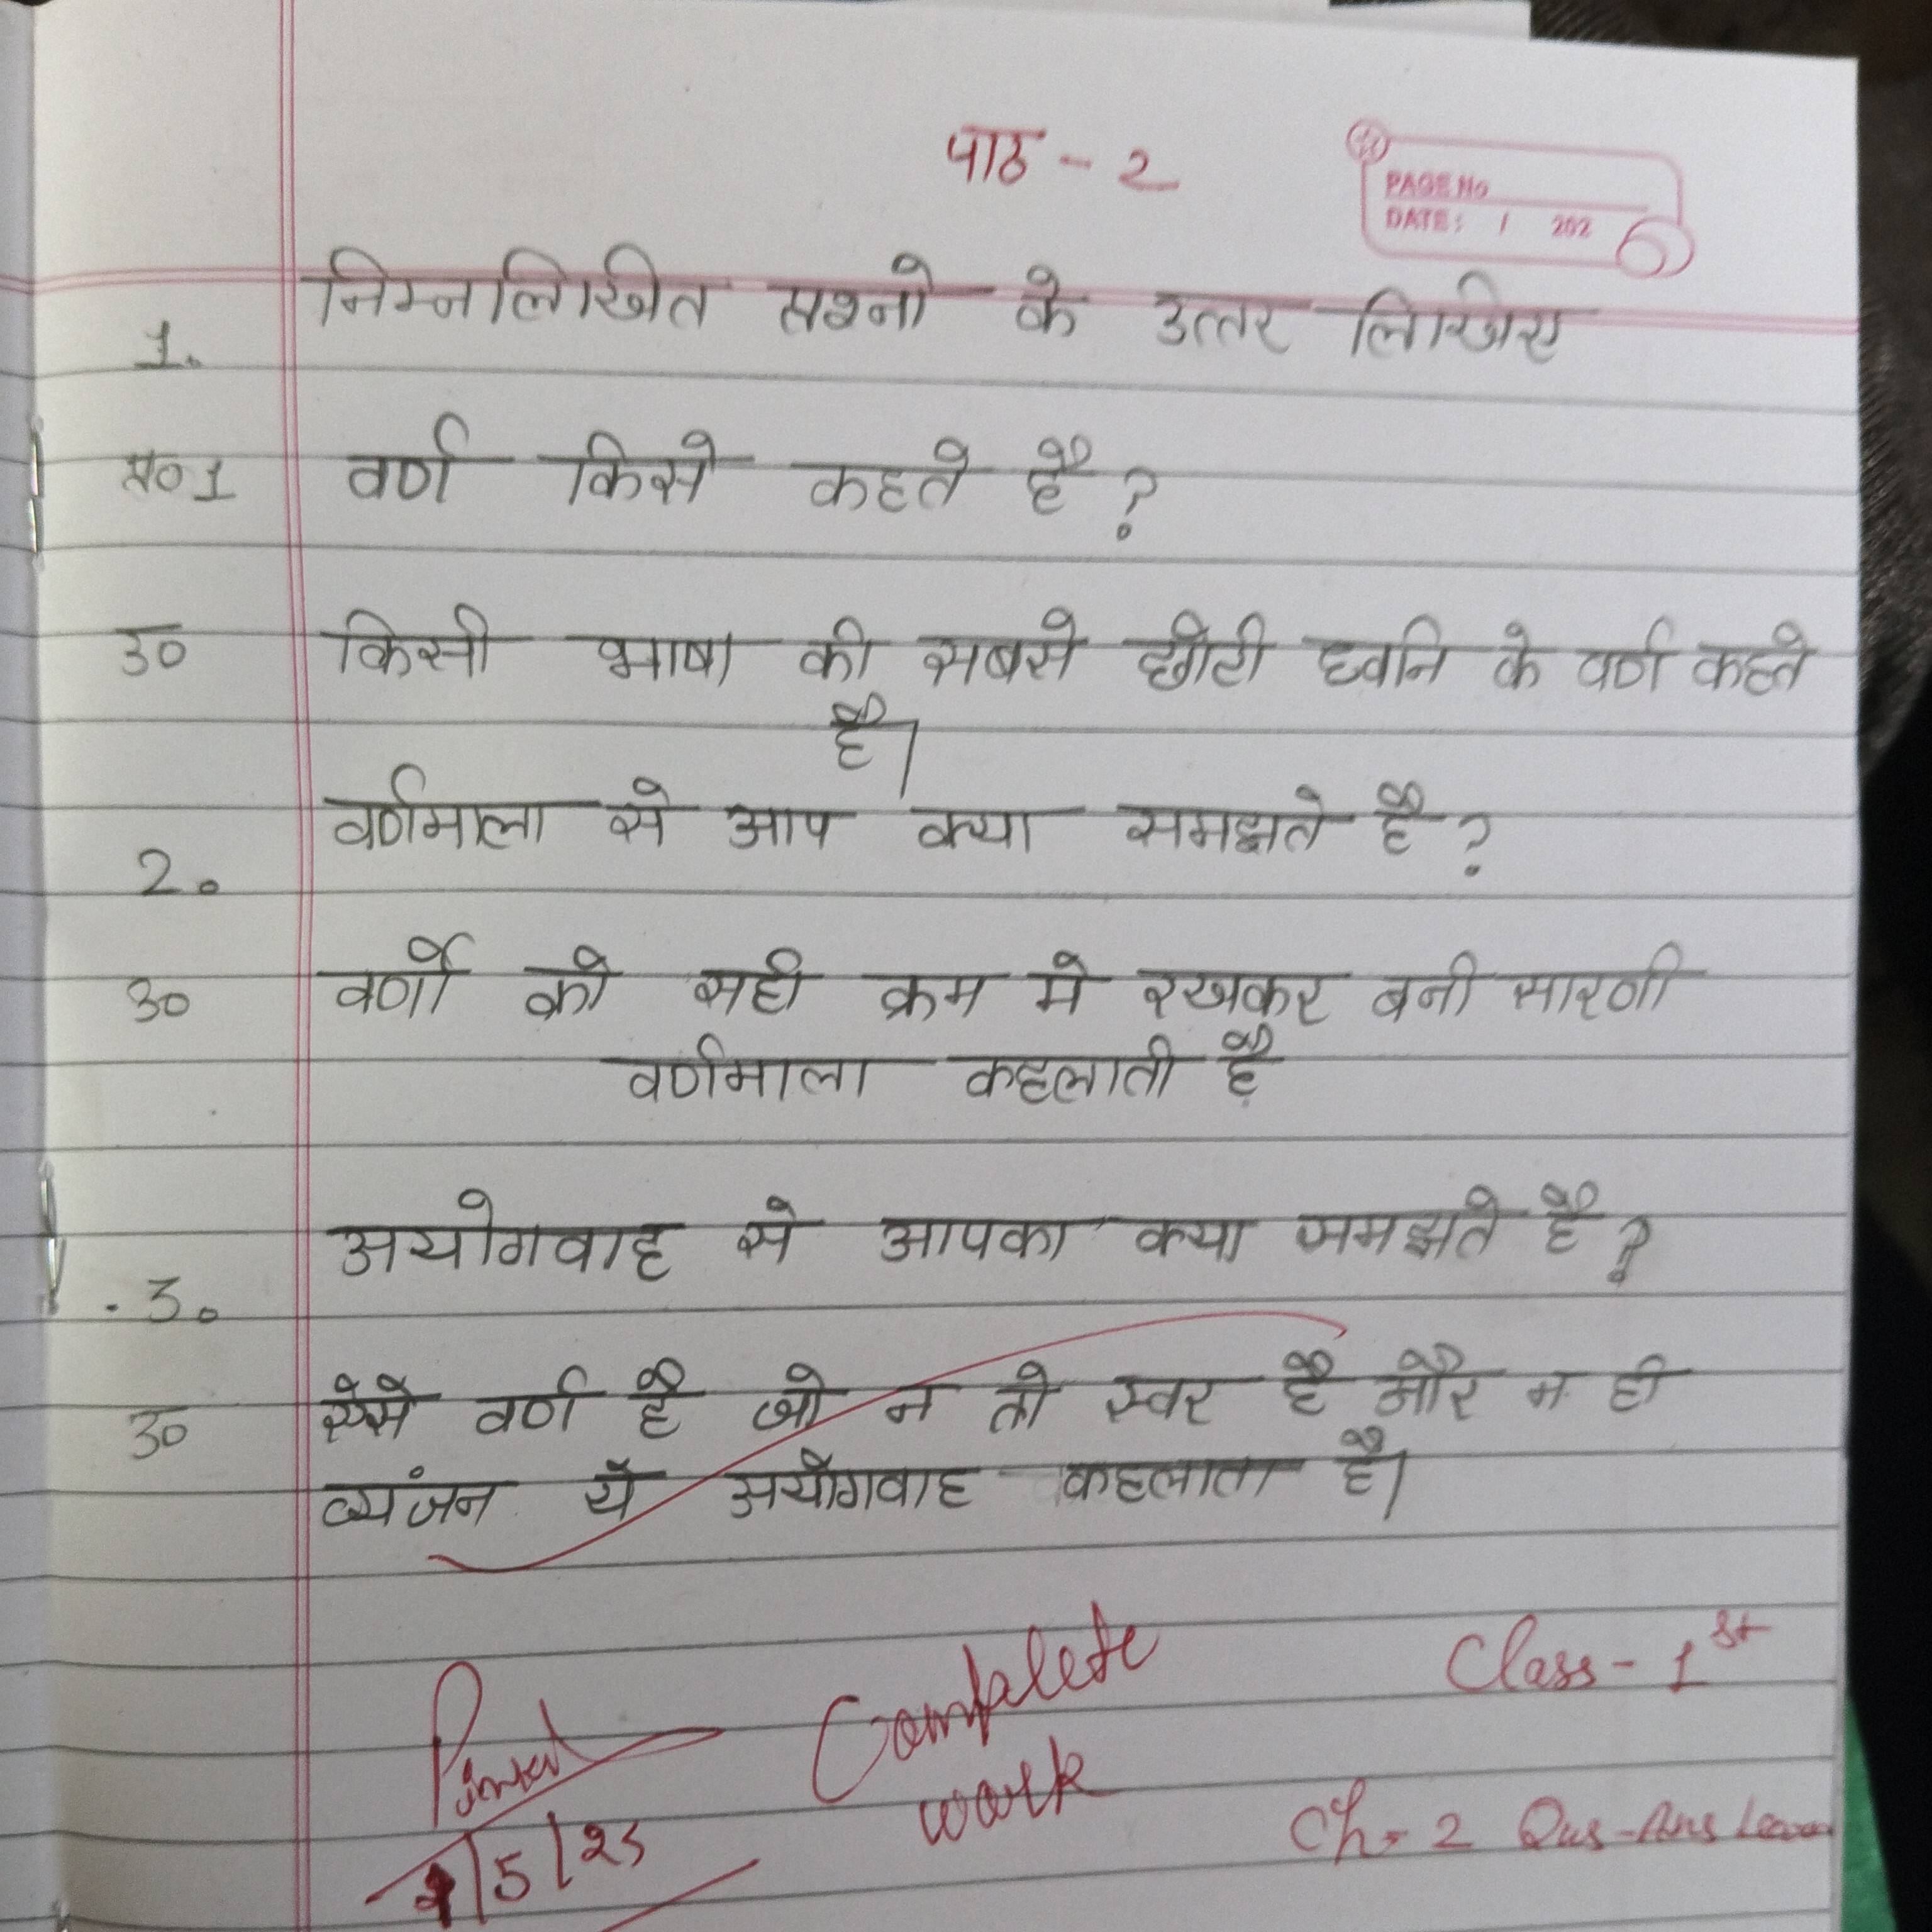 पाठ - 2
PAGE No
DATE: / 202
निम्नलिखित प्रश्नो के उत्तर लिखिए
1.
प्र० 1 वर्ण किसे कहते है ?
उ० किसी भाषा की सबसे छोटी ध्वनि के वर्ण कहते
है।
वर्णमाला से आप क्या समझते है ?
2.
उ० वर्णो को सही क्रम मे रखकर बनी सारणी
वर्णमाला कहलाती है
अयोगवाह से आपका क्या समझते है ?
3.
उ० ऐसे वर्ण है जो न तो स्वर है और न ही
व्यंजन ये अयोगवाह कहलाता है।
Class - 1st
Complete
work
/5/25
Ch - 2 Qus-Ans Learn